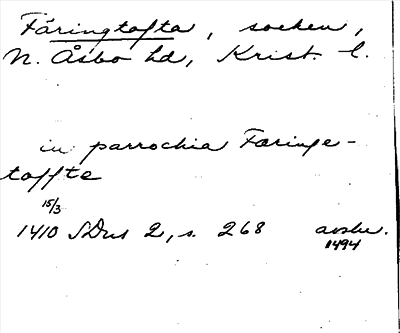 Färingtofta, socken,
N. Åsbo hd, Krist. l.
in parrochia Faringe-
toffte
15/3
1410 SDns 2, s. 268 avskr.
1494